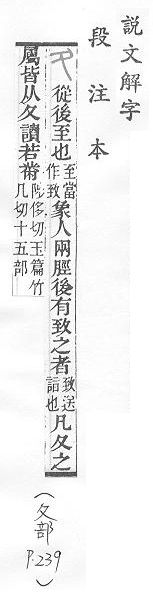 說文解字
段注本
夂從後至也至當作致象人兩脛後有致之者致送詣也凡夂之
屬皆从夂讀若黹陟侈切玉篇竹几切十五部
(夂部 P.239)